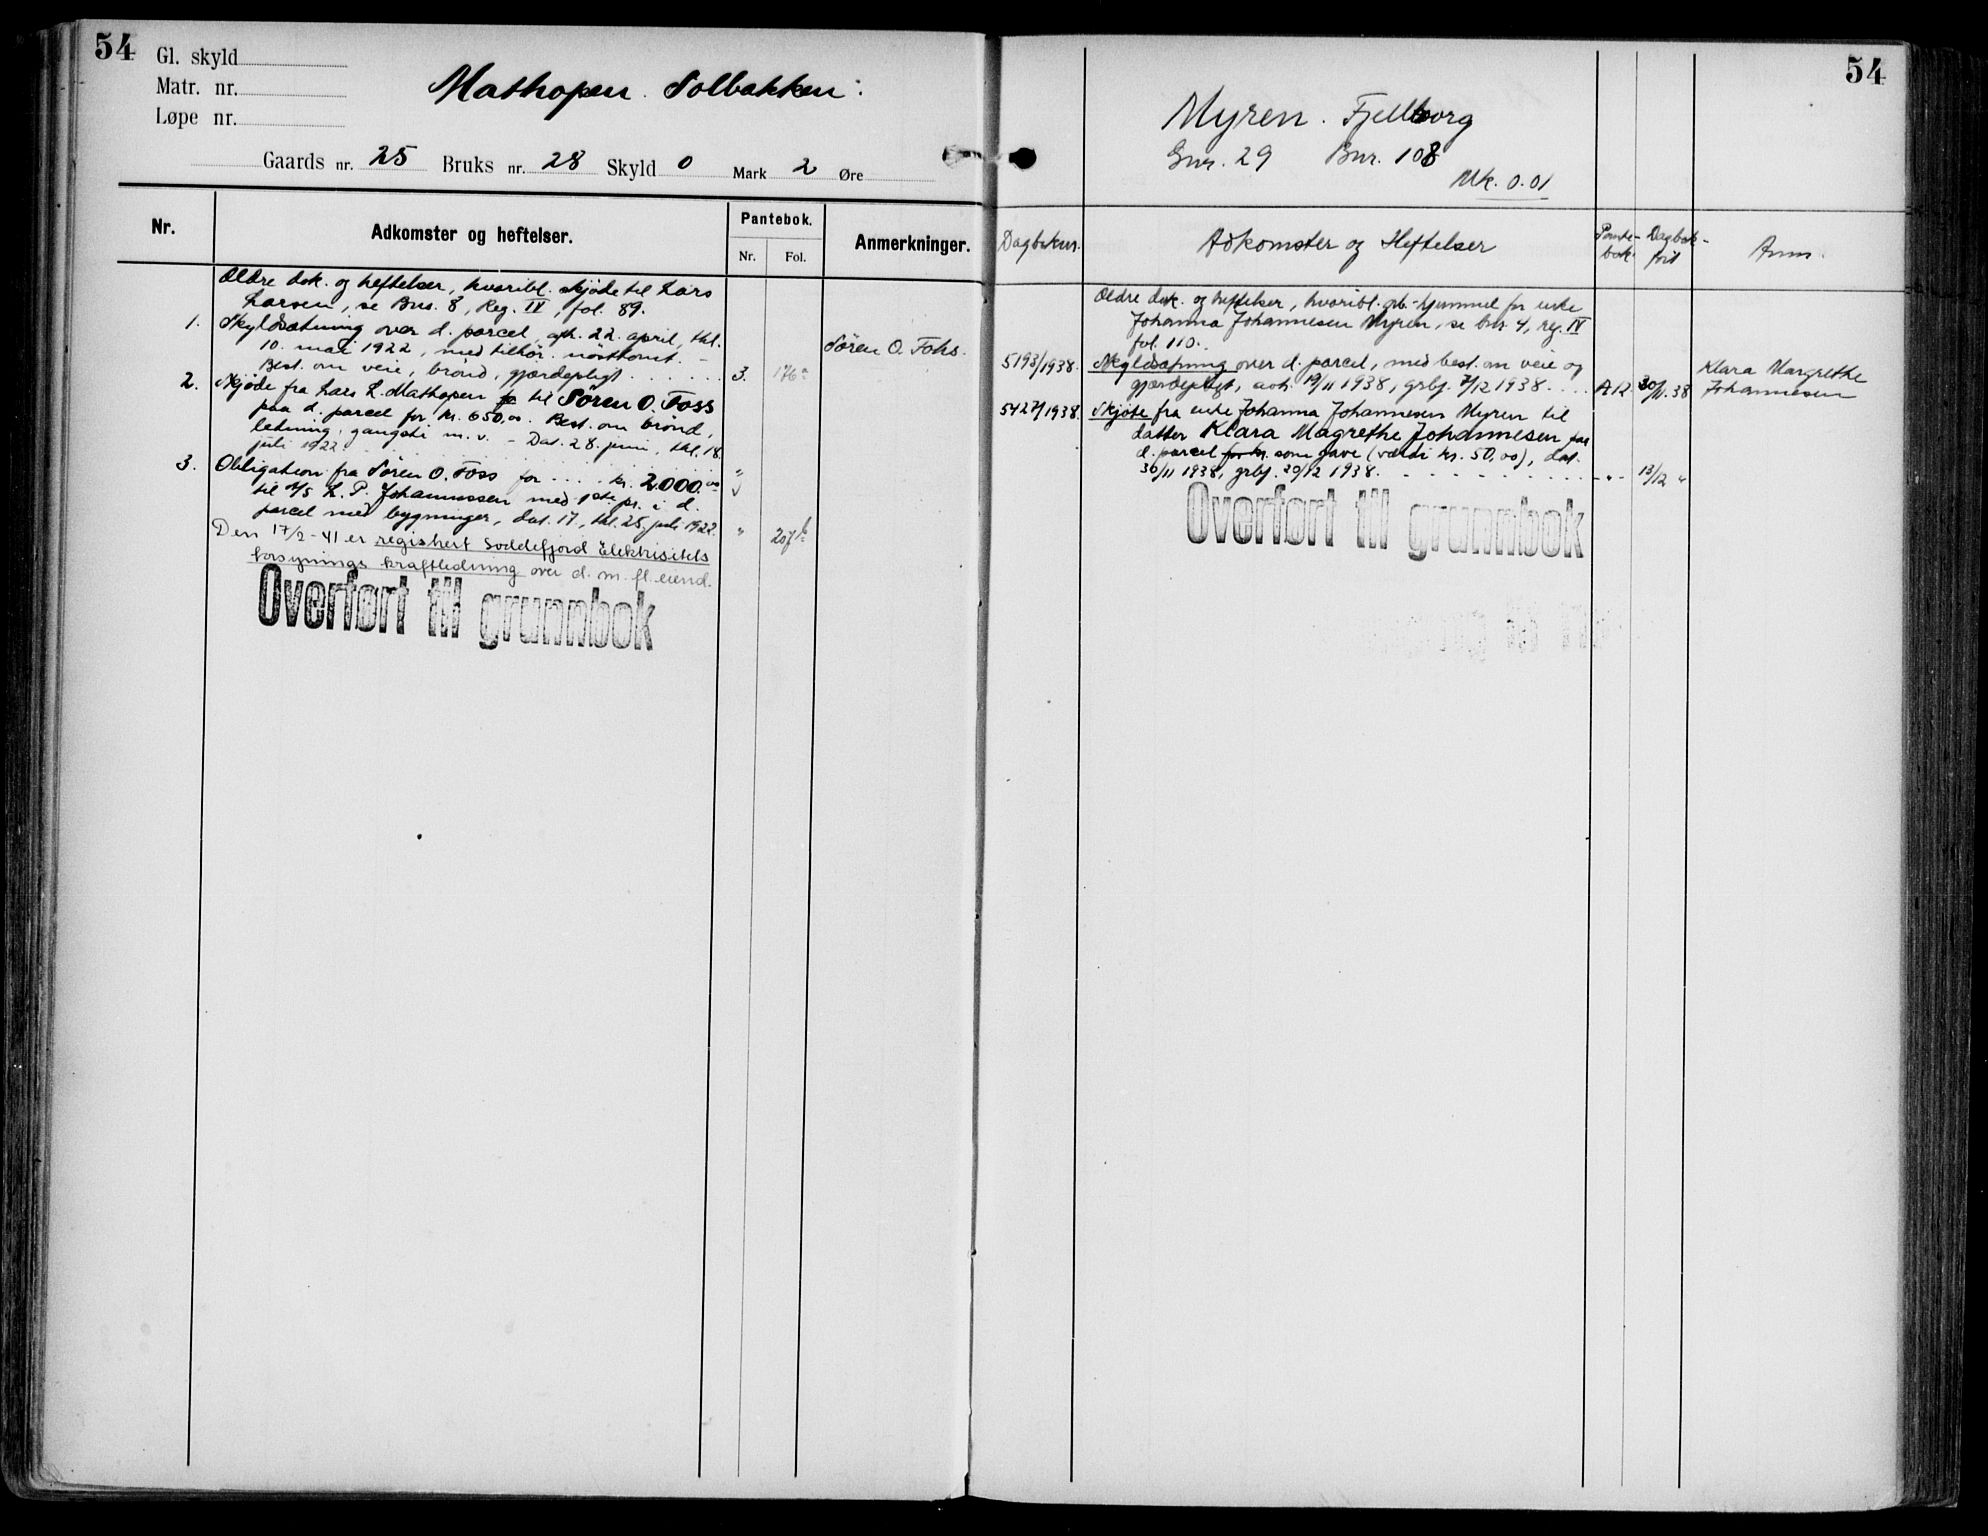 54
Gl. skyld
Matr. nr.
Løpe nr.
Mathopen Solbakken:
Gaards nr. 25 Bruks nr. 28 Skyld 0 Mark 2 Øre
Nr. Adkomster og heftelser. Pantebok. Anmerkninger.
Nr. Fol.
Ældre dok. og heftelser, hvoribl. skjøde til Lars
Larsen, se Bns. 8, Reg. IV, fol. 89.
1. Skyldsætning over d. parcel, afh. 22. april, thl.
10. mai 1922, med tilhør. nösttomt. – Søren O. Fohs.
Best. om veie, brønd, gjærdepligt ...... 3. 176a
2. Skjøde fra Lars L. Mathopen til Søren O. Foss
paa d. parcel for kr. 650,00. Best. om brönd,
ledning, gangsti m. v. – Dat. 28. juni, thl. 18.
juli 1922 ...... "
3. Obligation fra Søren O. Foss for .... kr. 2000.00
til A/S L. P. Johannessen med 1ste pr. i d.
parcel med bygninger, dat. 17, thl. 25. juli 1922. " 207b
Den 17/2-41 er registrert Soddefjord Elektrisitets
forsynings kraftledning over d. m. fl. eiend.
Overført til grunnbok
54
Myren. Fjellborg
Gnr. 29 Bnr. 108
Mk. 0.01
Dagboknr. Adkomster og Heftelser Pante-bok Dagbok-ført Anm.
Ældre dok. og heftelser, hvoribl. grb.-hjemmel for enke
Johanna Johannesen Myren, se bnr. 4, reg. IV
fol. 110.
5193/1938. Skyldsætning over d. parcel, med best. om veie og
gjærdepligt, avh. 19/11 1938, grbf. 7/12 1938 .... A 12 30/11.38 Klara Margrethe Johannesen
5427/1938. Skjøte fra enke Johanna Johannesen Myren til
datter Klara Magrethe Johannesen paa
d. parcel for kr. som gave (værdi kr. 50,00), dat.
30/11 1938, grbf. 20/12 1938. - - - - - " - 13/12 "
Overført til grunnbok